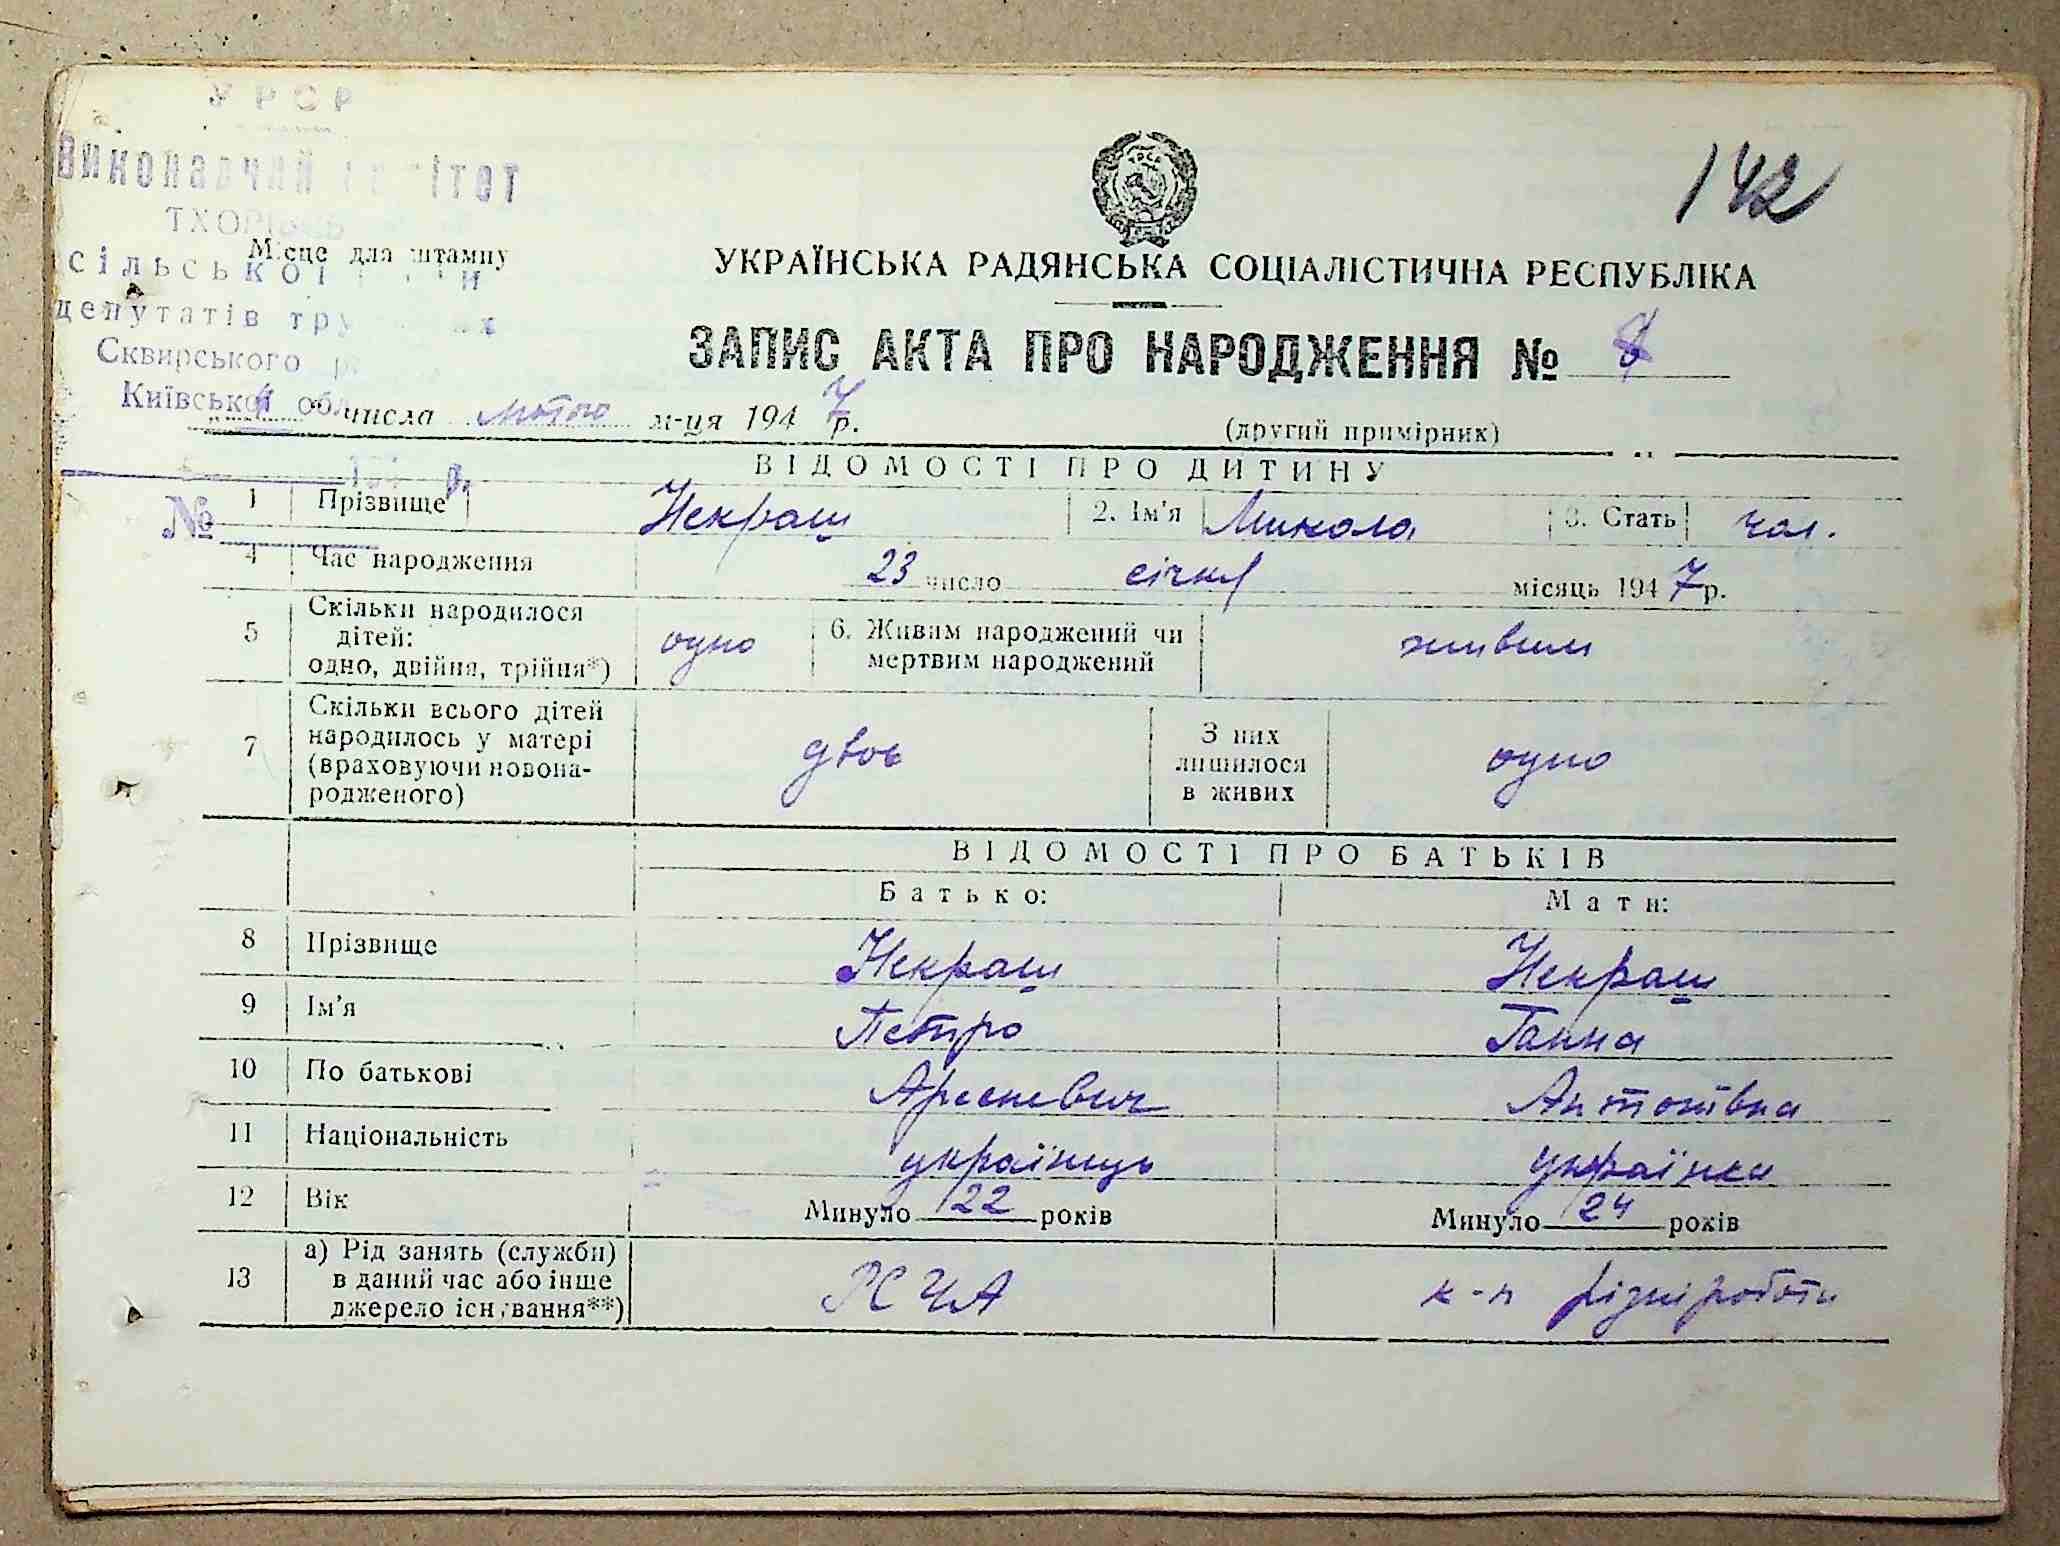 УРСР
Виконавчий комітет
ТХОРІВСЬ
Місце для штампу
сільської
депутатів
Сквирського
Київської обл.
№
142
УРСР
УКРАЇНСЬКА РАДЯНСЬКА СОЦІАЛІСТИЧНА РЕСПУБЛІКА
ЗАПИС АКТА ПРО НАРОДЖЕННЯ № 8
числа лютого м-ця 1947 р.
(другий примірник)
ВІДОМОСТІ ПРО ДИТИНУ
1 Прізвище Некраш 2. Ім'я Микола 3. Стать чол.
4 Час народження 23 число січня місяць 1947 р.
5 Скільки народилося дітей: одно, двійня, трійня*) одно 6. Живим народжений чи мертвим народжений живим
7 Скільки всього дітей народилось у матері (враховуючи новонародженого) двоє З них лишилося в живих одно
ВІДОМОСТІ ПРО БАТЬКІВ
Батько: Мати:
8 Прізвище Некраш Некраш
9 Ім'я Петро Ганна
10 По батькові Арсеневич Антонівна
11 Національність українець українка
12 Вік Минуло 22 років Минуло 24 років
13 а) Рід занять (служби) в даний час або інше джерело існування**) РСЧА к-п різні роботи